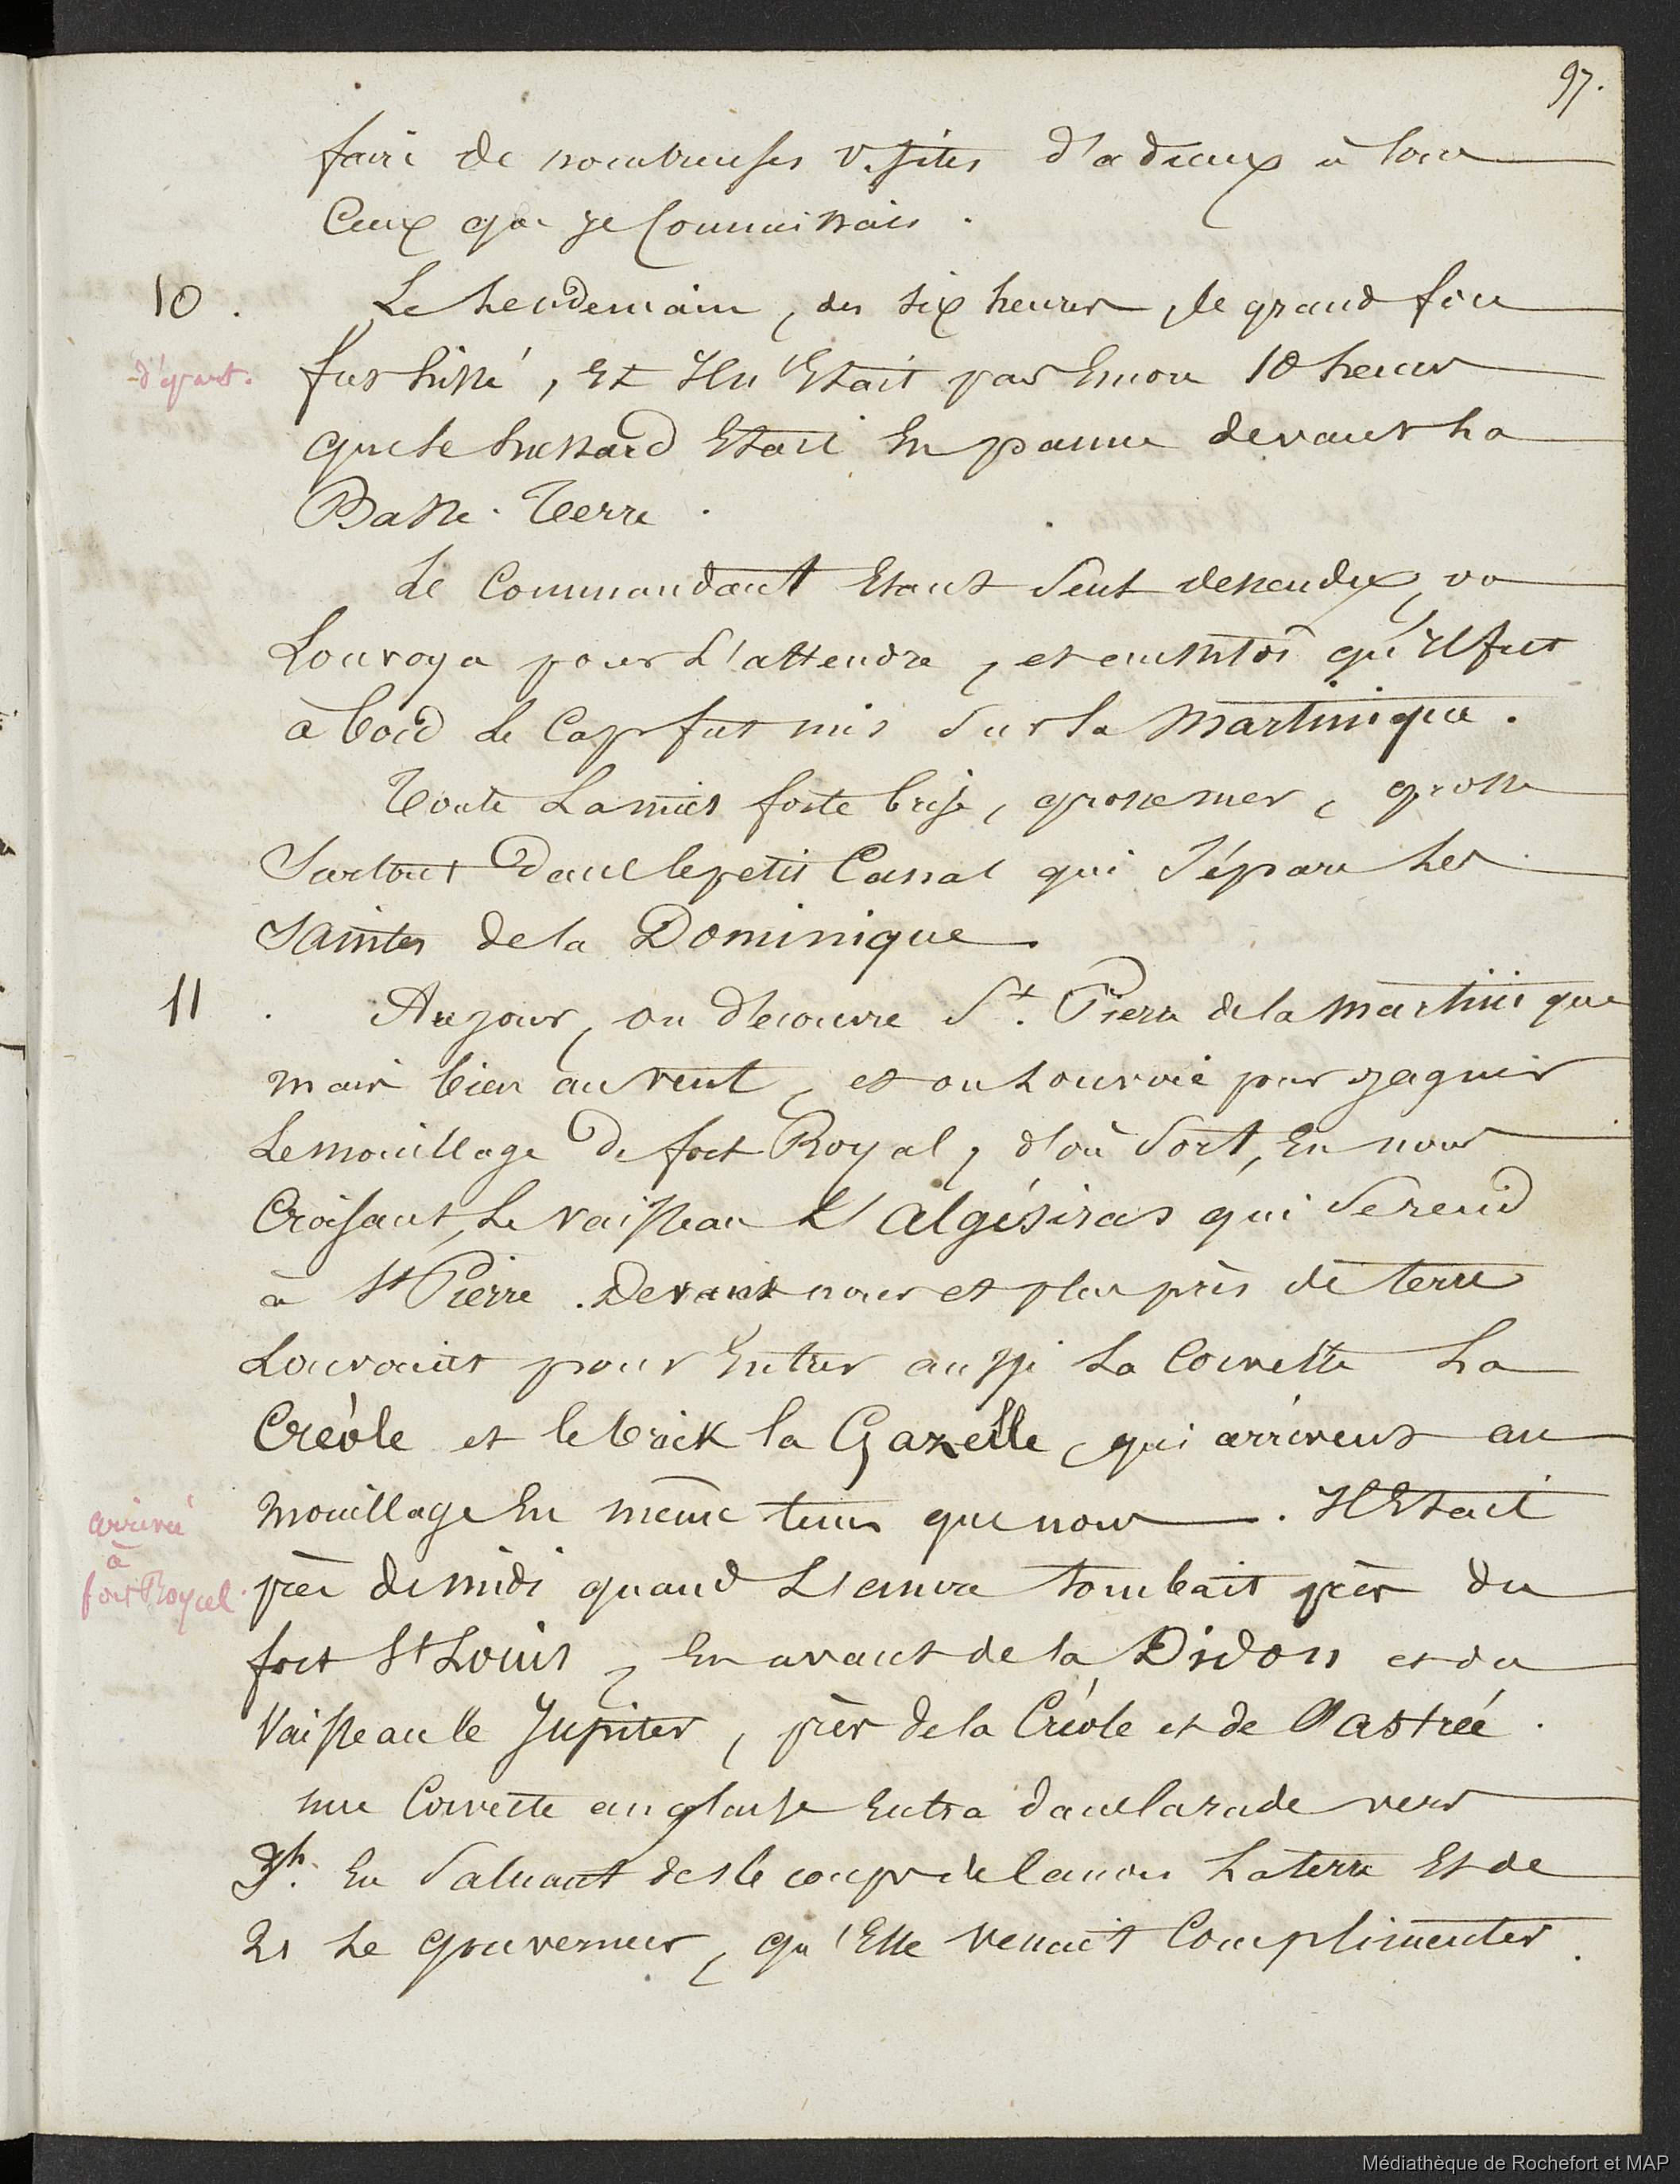 97.
faire de nombreuses visites d'adieux à tous
Ceux que je Connaissais.
10. Le Lendemain, des six heures, le grand foc
départ. fut hissé, Et Il n'Etait pas Encore 10 heures
que le hussard Etait En panne devant La
Basse-Terre.
Le Commandant Etant seul descendu, on
Louvoya pour L'attendre, et aussitôt qu'Il fut
à bord le Cap fut mis sur la Martinique.
Toute La nuit forte brise, grosse mer, grosse
Surtout Dans le petit Canal qui sépare Les
Saintes de la Dominique.
11. Au jour, on découvre St. Pierre de la Martinique
mais bien au vent, et on Louvoie pour gagner
Le mouillage De fort Royal, d'où sort, En nous
Croisant, Le vaisseau L'Algésiras qui se rend
à St Pierre. Devant nous et plus près de terre
Louvoient pour Entrer aussi La Corvette La
Créole et le brick la Gazelle, qui arrivent au
arrivée
à
fort Royal.
Mouillage En même tems que nous. Il Etait
près de midi quand L'ancre tombait près du
fort St Louis, En avant de la Didon et du
Vaisseau le Jupiter, près de la Créole et de l'astrée.
une Corvette anglaise Entra dans la rade vers
3h. En Saluant de coups de Canon La terre Et de
21 Le gouverneur, qu'Elle venait Complimenter.
Médiathèque de Rochefort et MAP